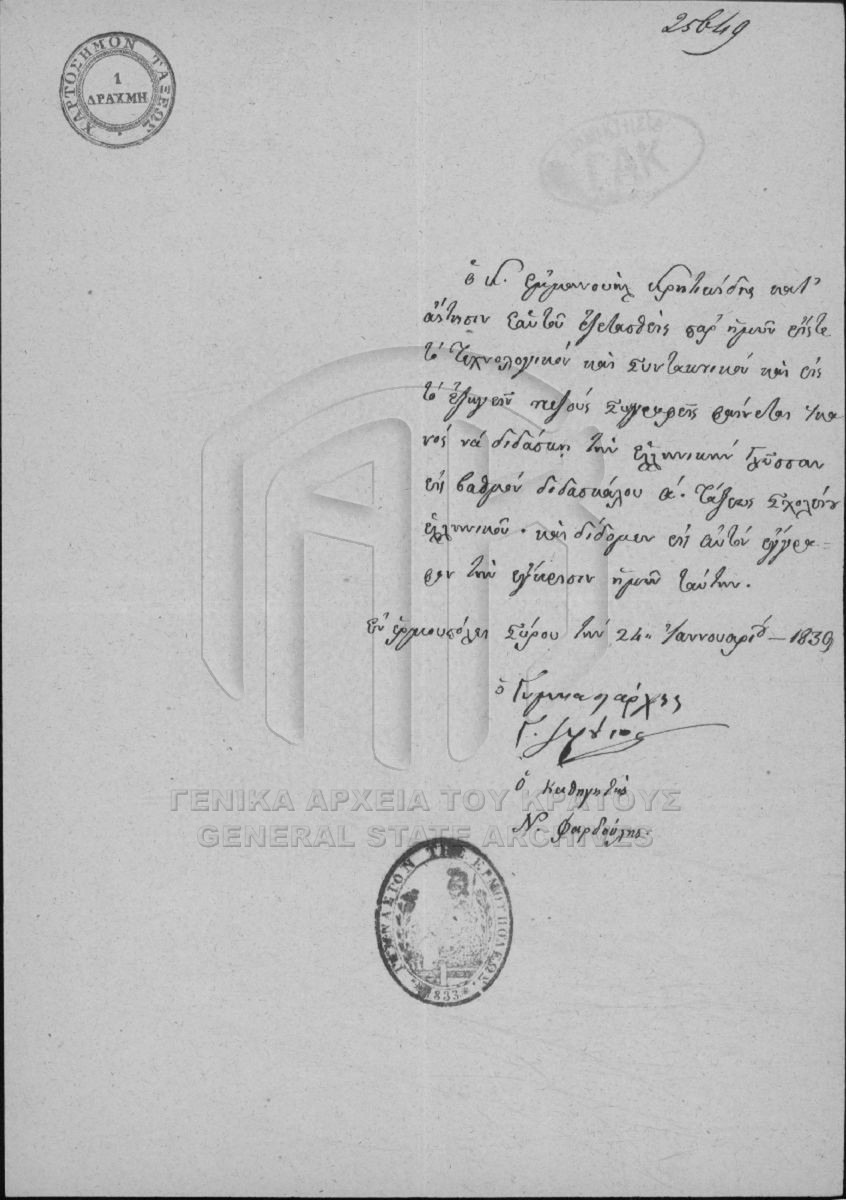 25649
ΧΑΡΤΟΣΗΜΟΝ ΤΑΞΕΩΣ
1
ΔΡΑΧΜΗ
ΓΑΚ
ὁ κ. Ἐμμανουὴλ κατ'
αἴτησιν ἑαυτοῦ ἐξετασθεὶς παρ' ἡμῶν εἴς τε
τὸ τεχνολογικὸν καὶ συντακτικὸν καὶ εἰς
τὸ ἐξηγεῖν πεζοὺς συγγραφεῖς φαίνεται ἱκα
νὸς νὰ διδάσκῃ τὴν ἑλληνικὴν γλῶσσαν
εἰς βαθμὸν διδασκάλου α΄. τάξεως σχολείου
ἑλληνικοῦ. καὶ δίδομεν εἰς αὐτὸν ἔγγρα-
φον τὴν ἔγκρισιν ἡμῶν ταύτην.
ἐν Ἑρμουπόλει Σύρου τὴν 24 Ἰαννουαρίου - 1839
ὁ Γυμνασιάρχης
Γ.
ὁ καθηγητὴς
Ν. Φαρδούλης.
ΓΕΝΙΚΑ ΑΡΧΕΙΑ ΤΟΥ ΚΡΑΤΟΥΣ
GENERAL STATE ARCHIVES
ΓΥΜΝΑΣΙΟΝ ΤΗΣ ΕΡΜΟΥΠΟΛΕΩΣ
1833